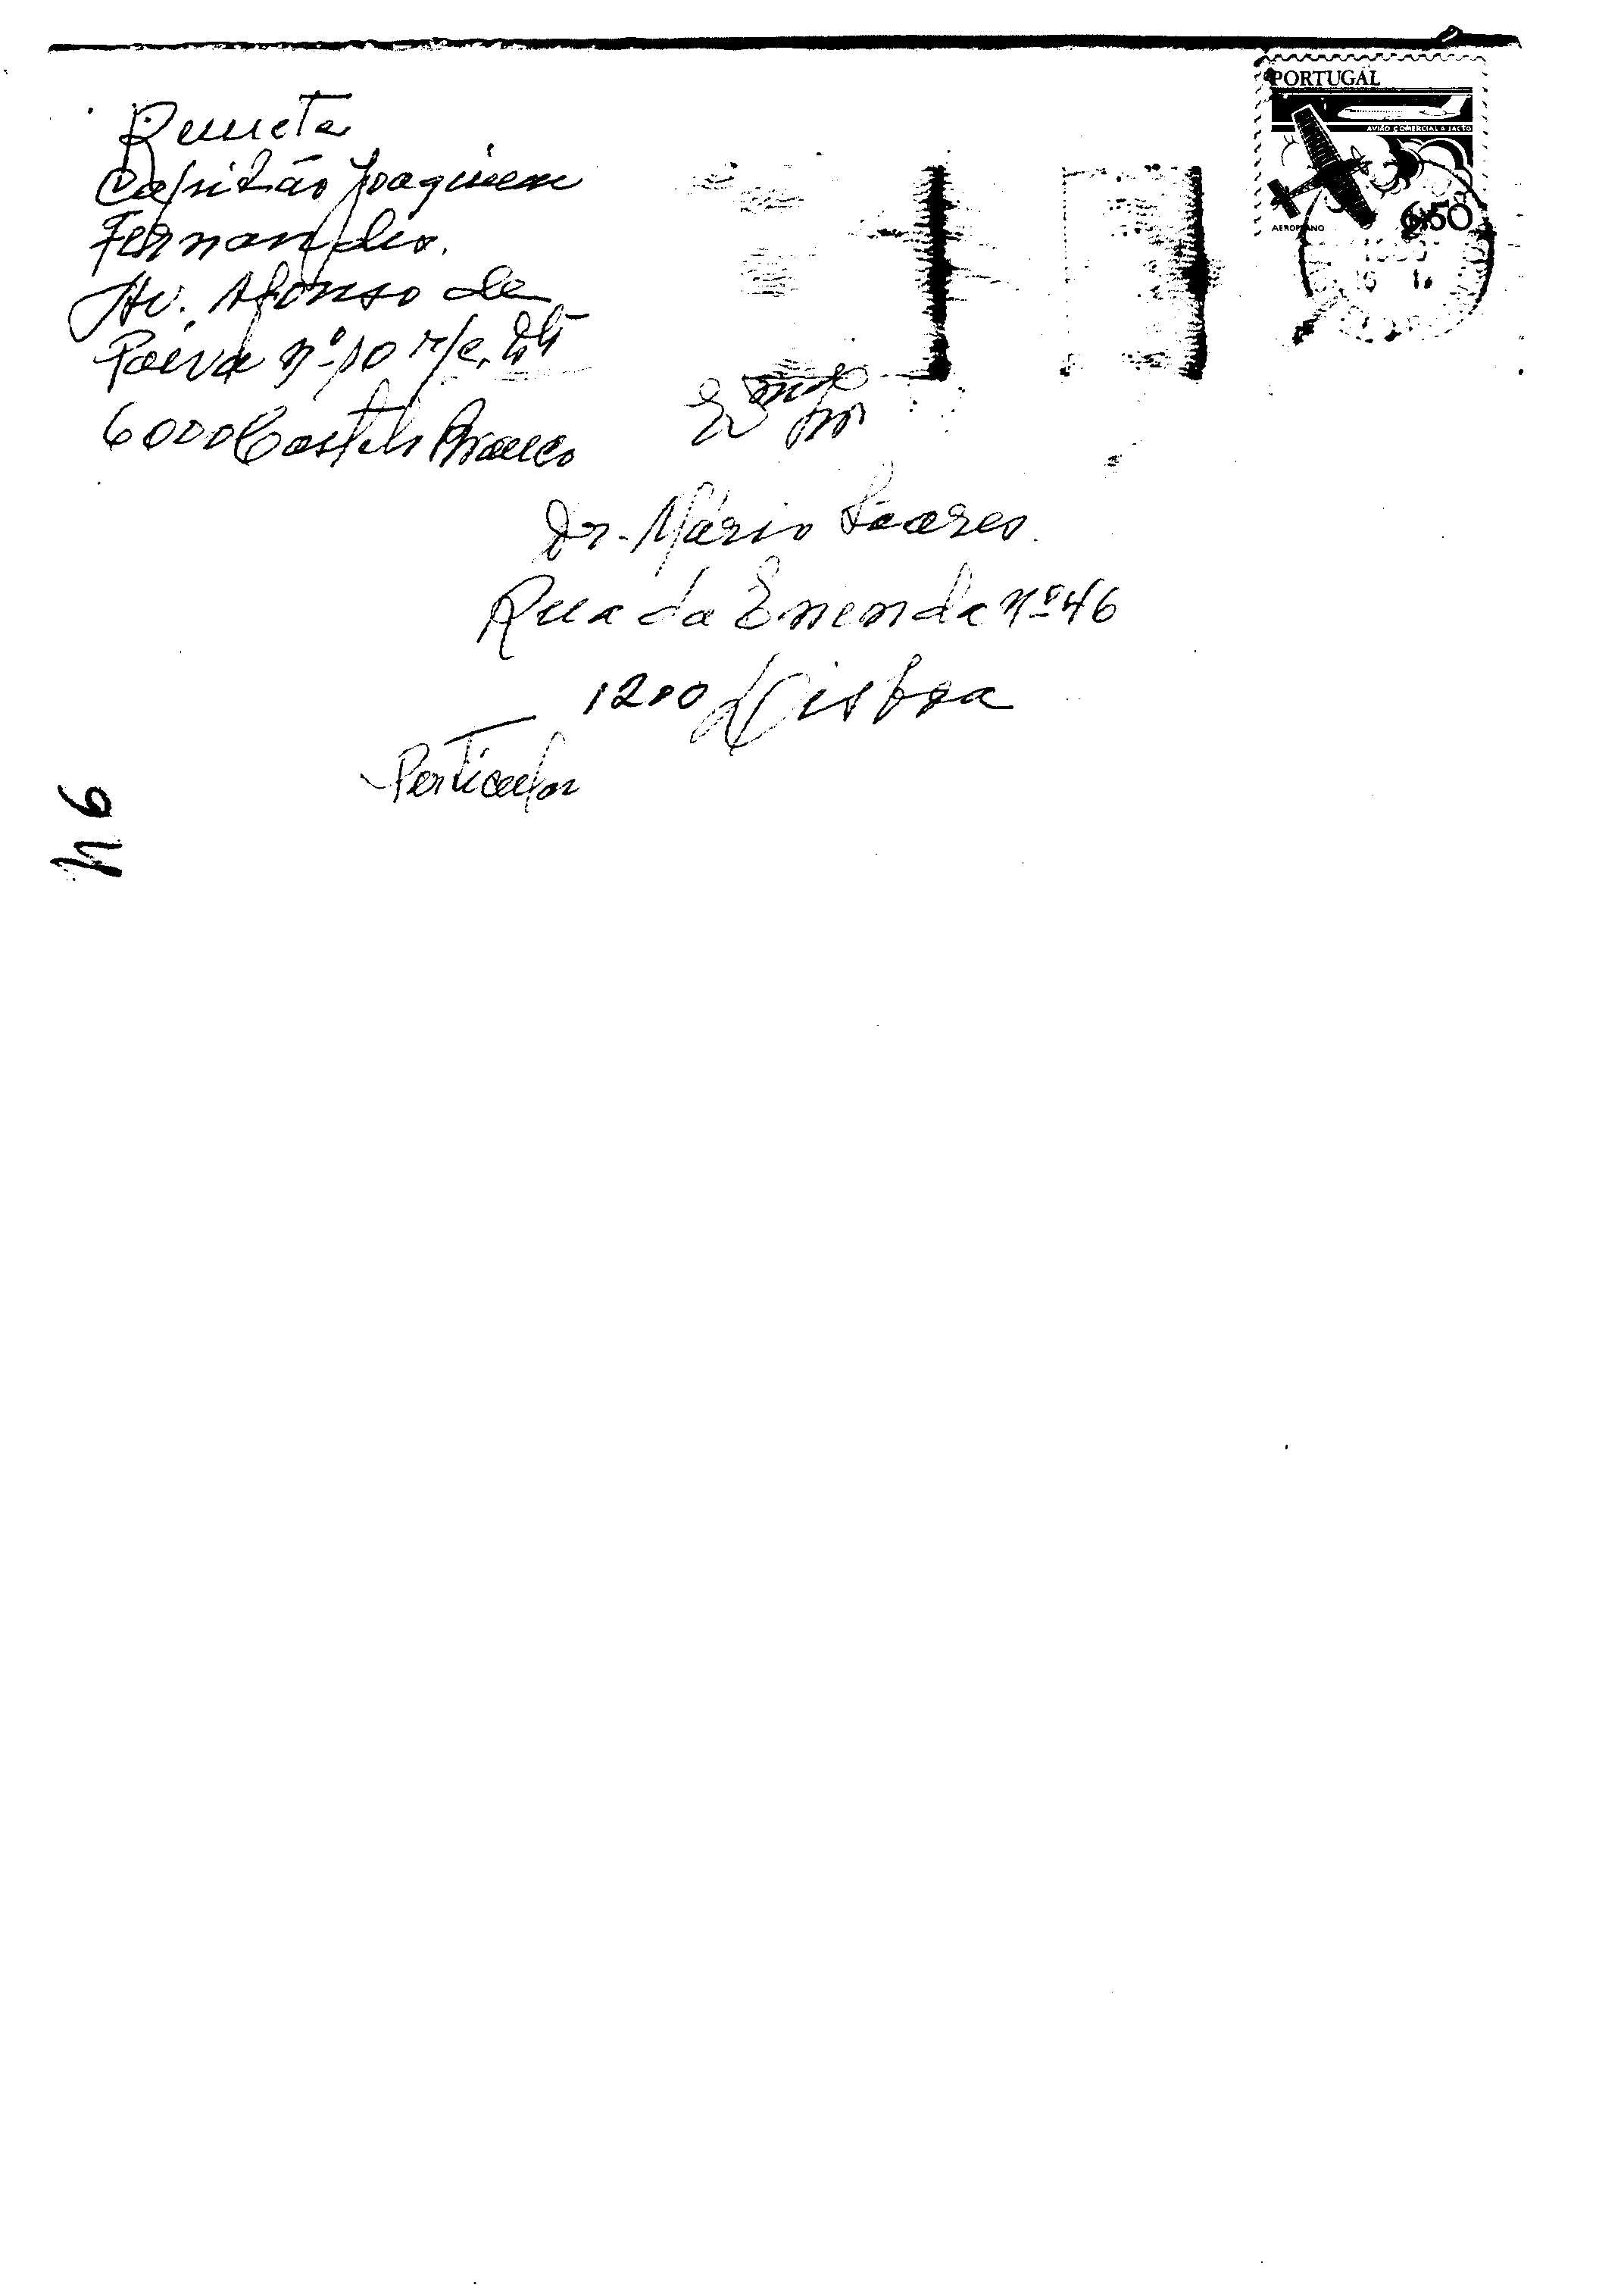 Remete
Capitão Joaquim
Fernandes.
Av. Afonso de
Paiva nº 10 r/c. Dtº
6000 Castelo Branco
PORTUGAL
AVIÃO COMERCIAL A JACTO
AEROPLANO
6$50
Exmo Snr
Dr. Mário Soares.
Rua da Emenda nº 46
1200 Lisboa
Particular
46